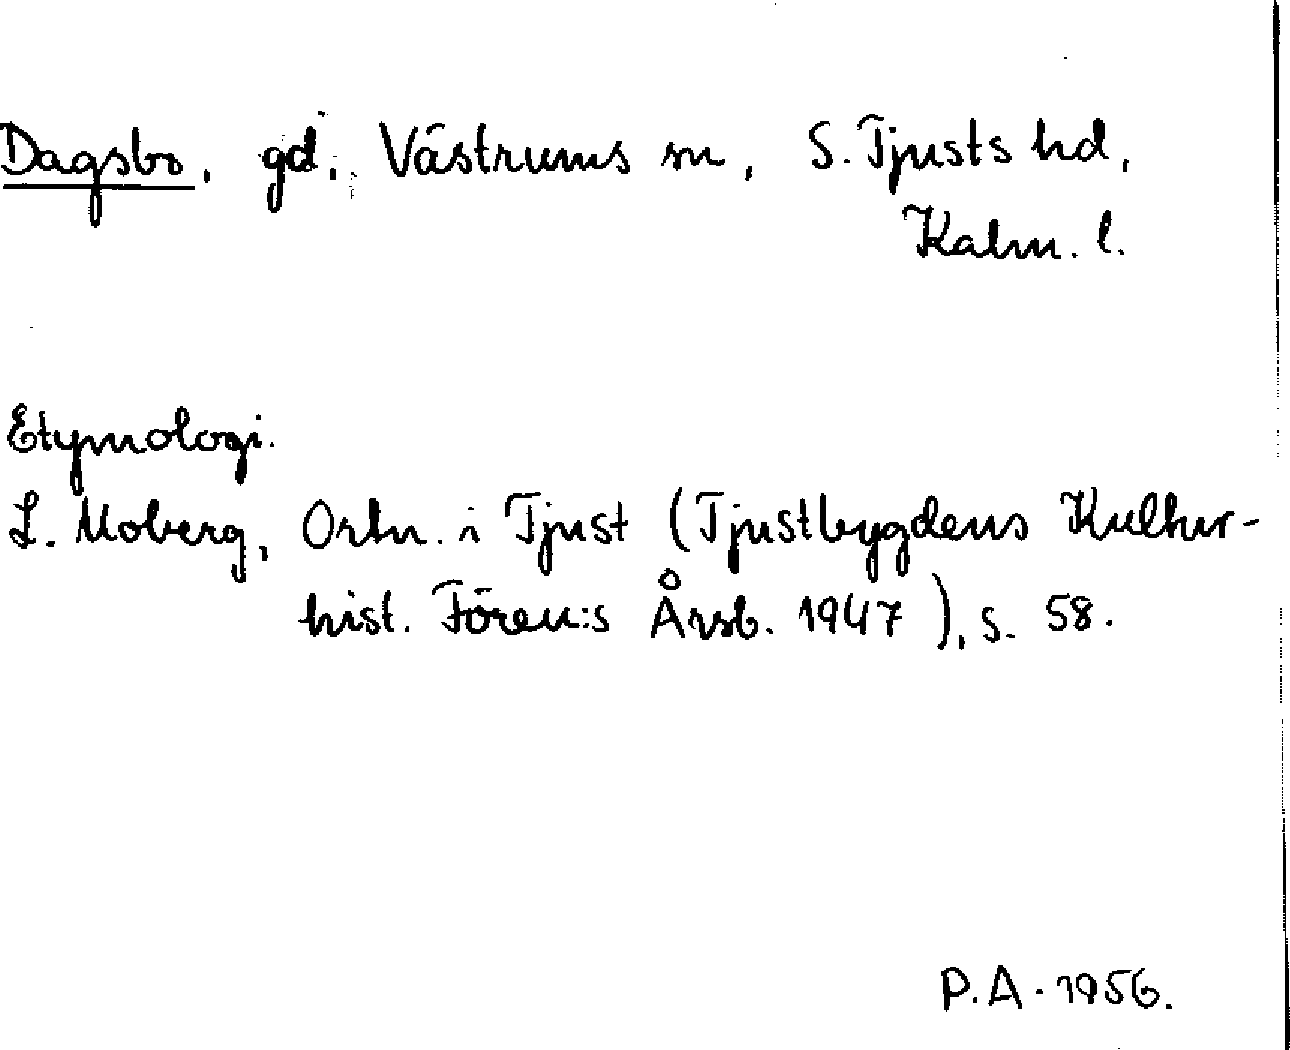 Dagsbo, gd, Västrums sn, S. Tjusts hd,
Kalm. l.
Etymologi.
L. Moberg, Ortn. i Tjust (Tjustbygdens Kultur-
hist. Fören:s Årsb. 1947), s. 58.
P.A. 1956.